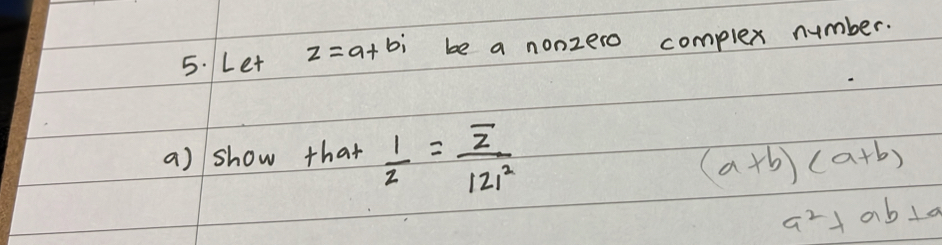 5. Let z = a + bi be a nonzero complex number.
a) show that 1/z = z̅/|z|²
(a+b)(a+b)
a² + ab + a